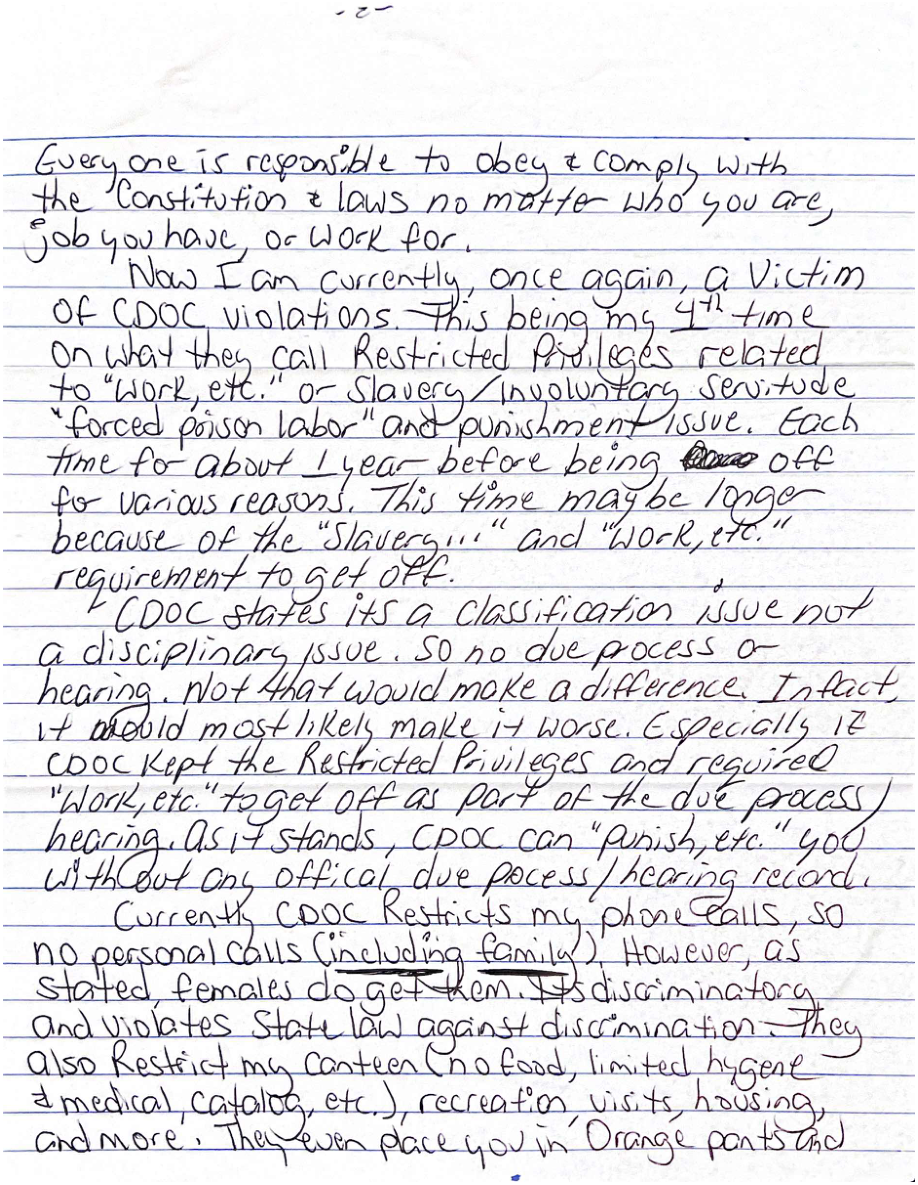 -2-
Everyone is responsible to obey & comply with
the Constitution & laws no matter who you are,
job you have, or work for.
Now I am currently, once again, a victim
of CDOC violations. This being my 4th time
on what they call Restricted Privileges related
to "work, etc." or Slavery/Involuntary Servitude
"forced prison labor" and punishment issue. Each
time for about 1 year before being off
for various reasons. This time may be longer
because of the "Slavery..." and "Work, etc."
requirement to get off.
CDOC states its a classification issue not
a disciplinary issue. So no due process or
hearing. Not that would make a difference. Infact,
it would most likely make it worse. Especially if
CDOC kept the Restricted Privileges and required
"Work, etc." to get off as part of the due process/
hearing. As it stands, CDOC can "punish, etc." you
without any offical due pocess/hearing record.
Currently CDOC Restricts my phone calls, so
no personal calls (including family). However, as
stated, females do get them. Its discriminatory
and violates State law against discrimination. They
also Restrict my canteen (no food, limited hygene
& medical, catalog, etc.), recreation, visits, housing,
and more. They even place you in Orange pants and